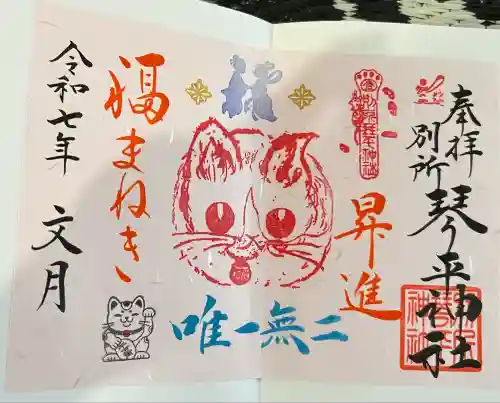 奉拝
別所琴平神社
昇進
唯一無二
福まねき
令和七年
文月